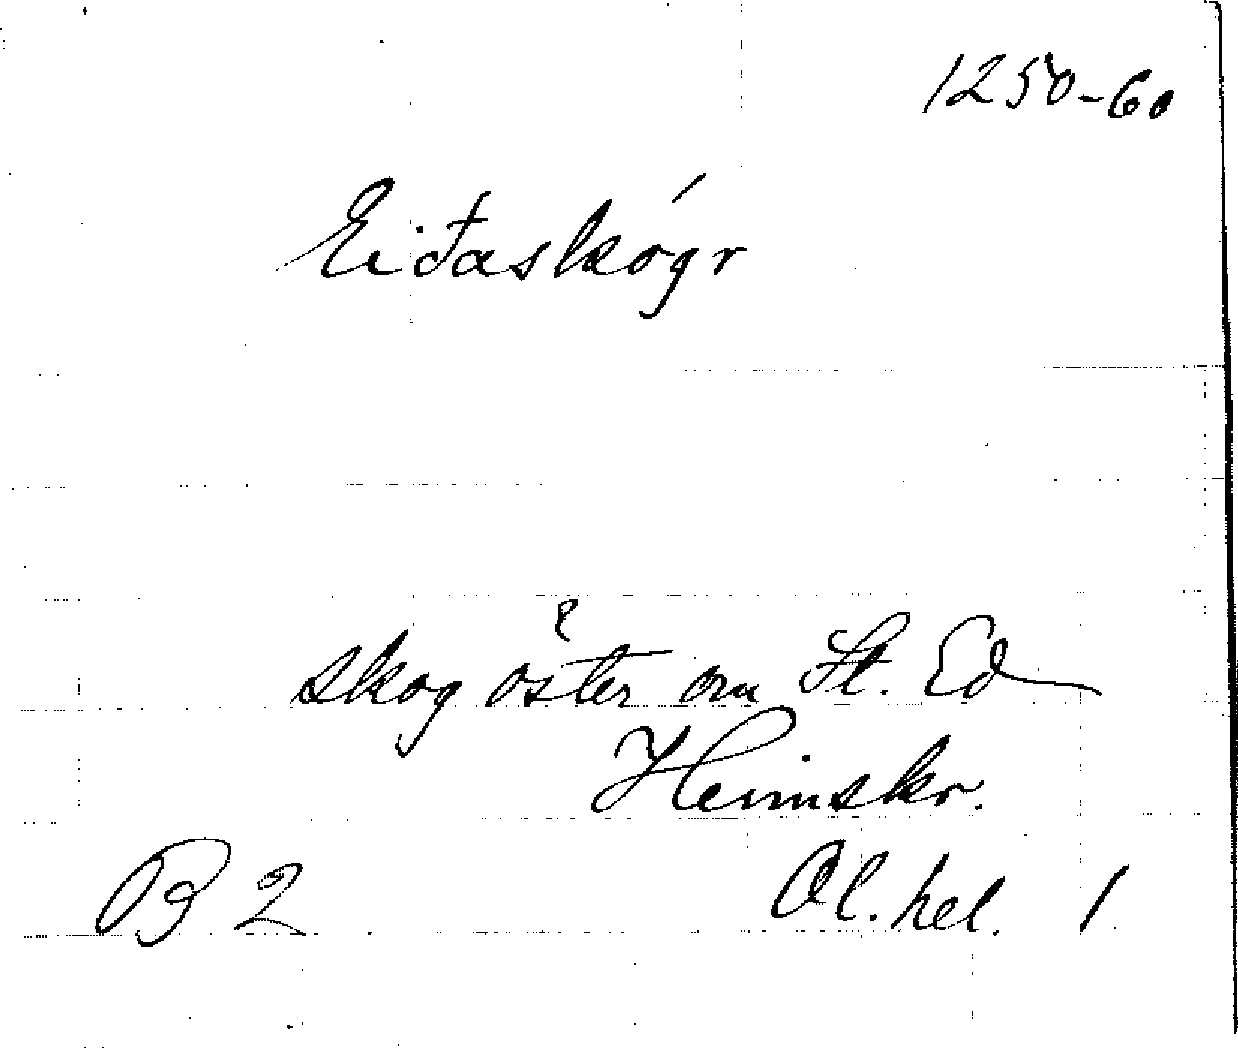 1250-60
Eiđaskógr
skog öster om St. Ed
Heimskr.
B 2 Ol. hel. 1